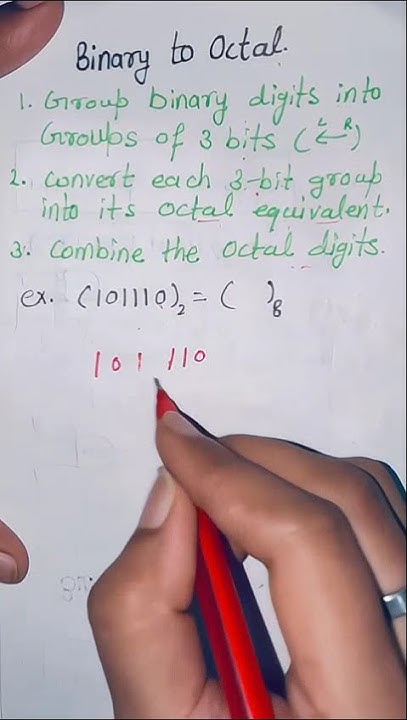 Binary to Octal.
1. Group binary digits into
Groups of 3 bits (L ← R)
2. Convert each 3-bit group
into its octal equivalent.
3. Combine the octal digits.
ex. (101110)₂ = ( )₈
101 110